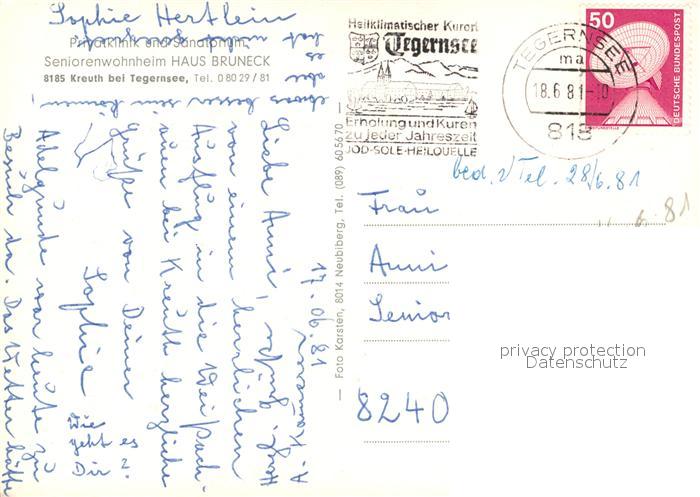 Sophie Hertlein
Privatklinik und Sanatorium,
Seniorenwohnheim HAUS BRUNECK
8185 Kreuth bei Tegernsee, Tel. 0 80 29 / 81
etwas besser sein können!
17.06.81
Liebe Anni,
von einem herrlichen
Ausflug in die Weißach-
auen bei Kreuth herzliche
Grüße von Deiner
Sophie
Adelgunde war heute zu
Besuch da. Das Wetter hätte
Wie
geht es
Dir?
— Foto Karsten, 8014 Neubiberg, Tel. (089) 605670 —
Heilklimatischer Kurort
Tegernsee
Erholung und Kuren
zu jeder Jahreszeit
JOD-SOLE-HEILQUELLE
TEGERNSEE
ma
18.6.81-10
818
50
DEUTSCHE BUNDESPOST
bed. Tel. 28/6.81
6. 81
Frau
Anni
Senior
8240
privacy protection
Datenschutz